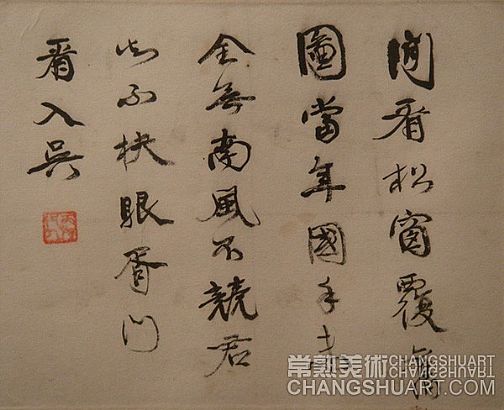 閒看松窗覆舊
圖當年國手
全無南風不競君
知不抉眼胥門
看入吳
常熟美術 CHANGSHUART
CHANGSHUART.COM